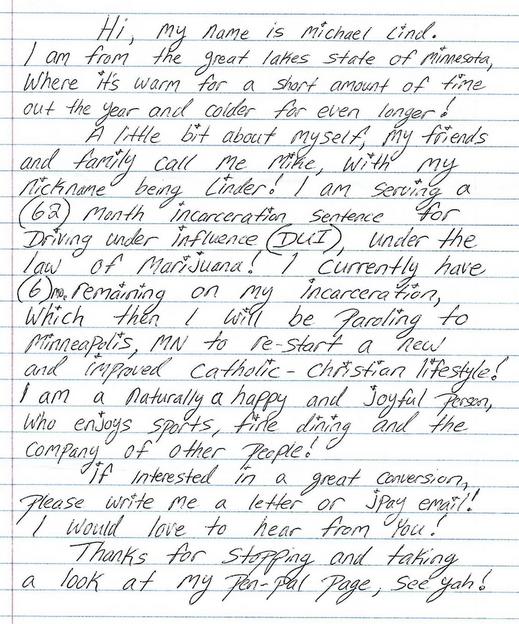 Hi, my name is Michael Lind.
I am from the great lakes state of Minnesota,
Where it's warm for a short amount of time
out the year and colder for even longer!
A little bit about myself, my friends
and family call me Mike, with my
nickname being Linder! I am serving a
(62) month incarceration sentence for
Driving under influence (DUI), under the
law of Marijuana! I currently have
(6) mo. remaining on my incarceration,
Which then I will be paroling to
Minneapolis, MN to re-start a new
and improved Catholic-Christian lifestyle!
I am a naturally a happy and joyful person,
who enjoys sports, fine dining and the
company of other people!
If interested in a great conversion,
please write me a letter or jpay email!
I would love to hear from you!
Thanks for stopping and taking
a look at my pen-pal page, see yah!